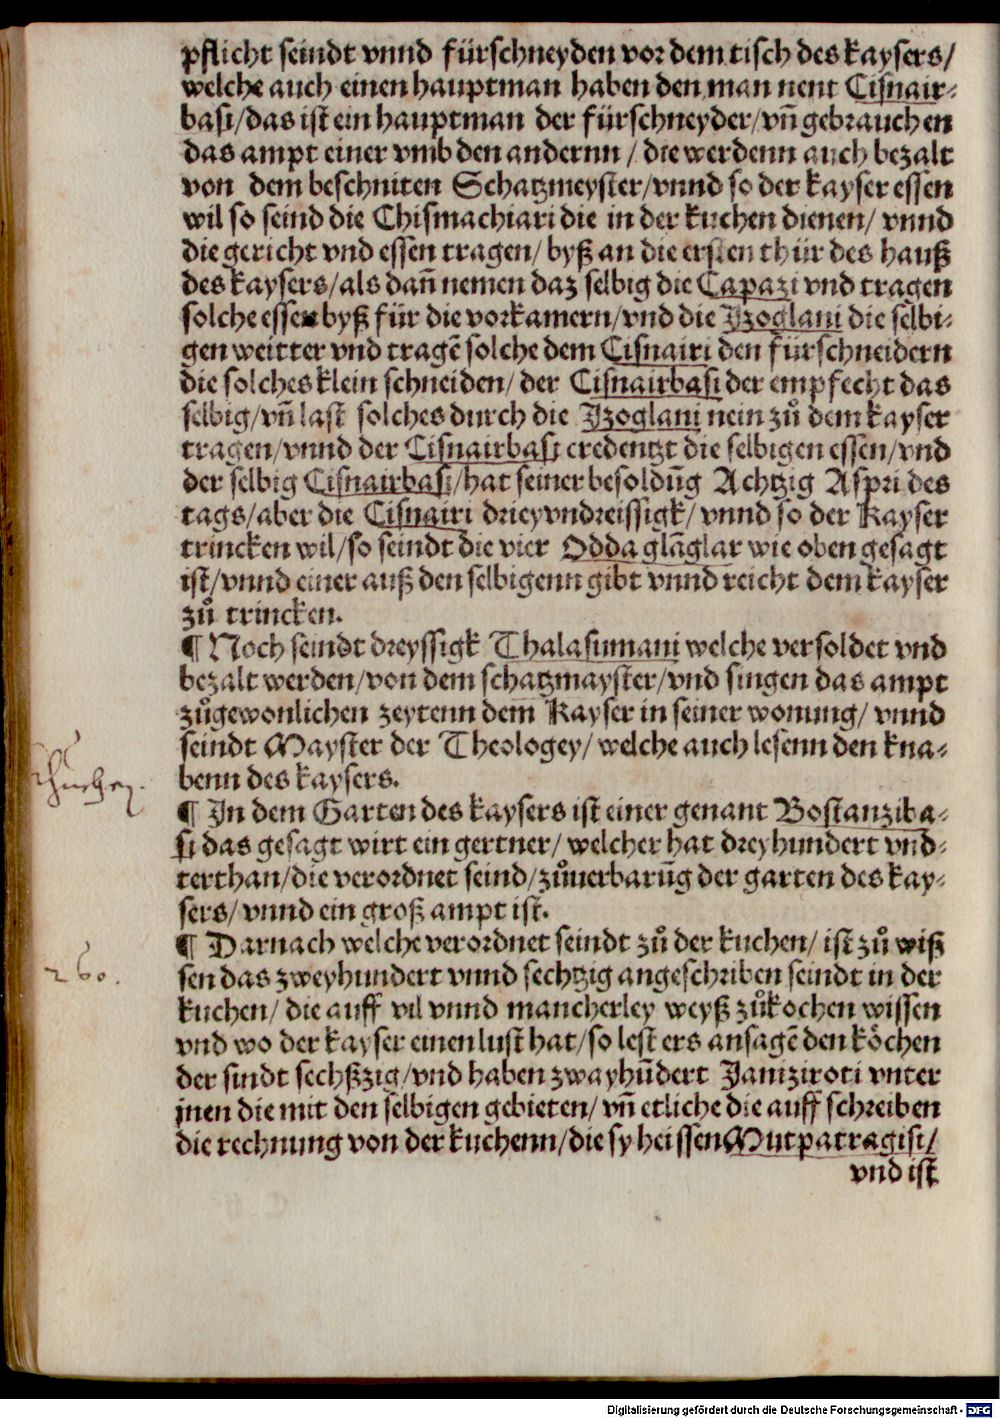 pflicht seindt vnnd fürschneyden vor dem tisch des kaysers/
welche auch einen hauptman haben den man nent Cisnair-
basi/das ist ein hauptman der fürschneyder/vñ gebrauchen
das ampt einer vmb den andernn / die werdenn auch bezalt
von dem beschniten Schatzmeyster/vnnd so der kayser essen
wil so seind die Chismachiari die in der kuchen dienen/ vnnd
die gericht vnd essen tragen/ byß an die ersten thür des hauß
des kaysers/als dañ nemen daz selbig die Capazi vnd tragen
solche essen byß für die vorkamern/vnd die Izoglani die selbi-
gen weitter vnd tragē solche dem Cisnairi den fürschneidern
die solches klein schneiden/ der Cisnairbasi der empfecht das
selbig/vñ last solches durch die Izoglani nein zů dem kayser
tragen/vnnd der Cisnairbasi credentzt die selbigen essen/vnd
der selbig Cisnairbasi/hat seiner besoldūg Achtzig Aspri des
tags/aber die Cisnairi drieyvndreissigk/ vnnd so der Kayser
trincken wil/so seindt die vier Odda glāglar wie oben gesagt
ist/vnnd einer auß den selbigenn gibt vnnd reicht dem kayser
zů trincken.
¶ Noch seindt dreyssigk Thalasumani welche versoldet vnd
bezalt werden/von dem schatzmayster/vnd singen das ampt
zůgewonlichen zeytenn dem Kayser in seiner wonung/ vnnd
seindt Mayster der Theologey/ welche auch lesenn den kna-
benn des kaysers.
¶ In dem Garten des kaysers ist einer genant Bostanziba-
si das gesagt wirt ein gertner/ welcher hat dreyhundert vnd-
terthan/die verordnet seind/zůuerbarūg der garten des kay-
sers/ vnnd ein groß ampt ist.
¶ Darnach welche verordnet seindt zů der kuchen/ ist zů wiß
260.
sen das zweyhundert vnnd sechtzig angeschriben seindt in der
kuchen/ die auff vil vnnd mancherley weyß zůkochen wissen
vnd wo der kayser einen lust hat/so lest ers ansagē den köchen
der sindt sechßzig/vnd haben zwayhūdert Janiziroti vnter
jnen die mit den selbigen gebieten/ vñ etliche die auff schreiben
die rechnung von der kuchenn/die sy heissen Mutpatragisi/
vnd ist
Digitalisierung gefördert durch die Deutsche Forschungsgemeinschaft - DFG